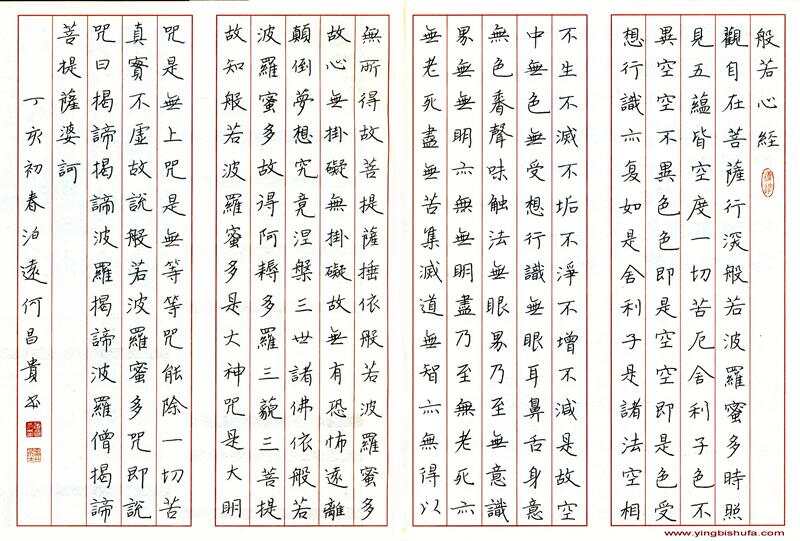 般若心經
觀自在菩薩行深般若波羅蜜多時照
見五蘊皆空度一切苦厄舍利子色不
異空空不異色色即是空空即是色受
想行識亦復如是舍利子是諸法空相
不生不滅不垢不淨不增不減是故空
中無色無受想行識無眼耳鼻舌身意
無色香聲味触法無眼界乃至無意識
界無無明亦無無明盡乃至無老死亦
無老死盡無苦集滅道無智亦無得以
無所得故菩提薩埵依般若波羅蜜多
故心無掛礙無掛礙故無有恐怖遠離
顛倒夢想究竟涅槃三世諸佛依般若
波羅蜜多故得阿耨多羅三藐三菩提
故知般若波羅蜜多是大神咒是大明
咒是無上咒是無等等咒能除一切苦
真實不虛故說般若波羅蜜多咒即說
咒曰揭諦揭諦波羅揭諦波羅僧揭諦
菩提薩婆訶
丁亥初春泊遠何昌貴书
www.yingbishufa.com